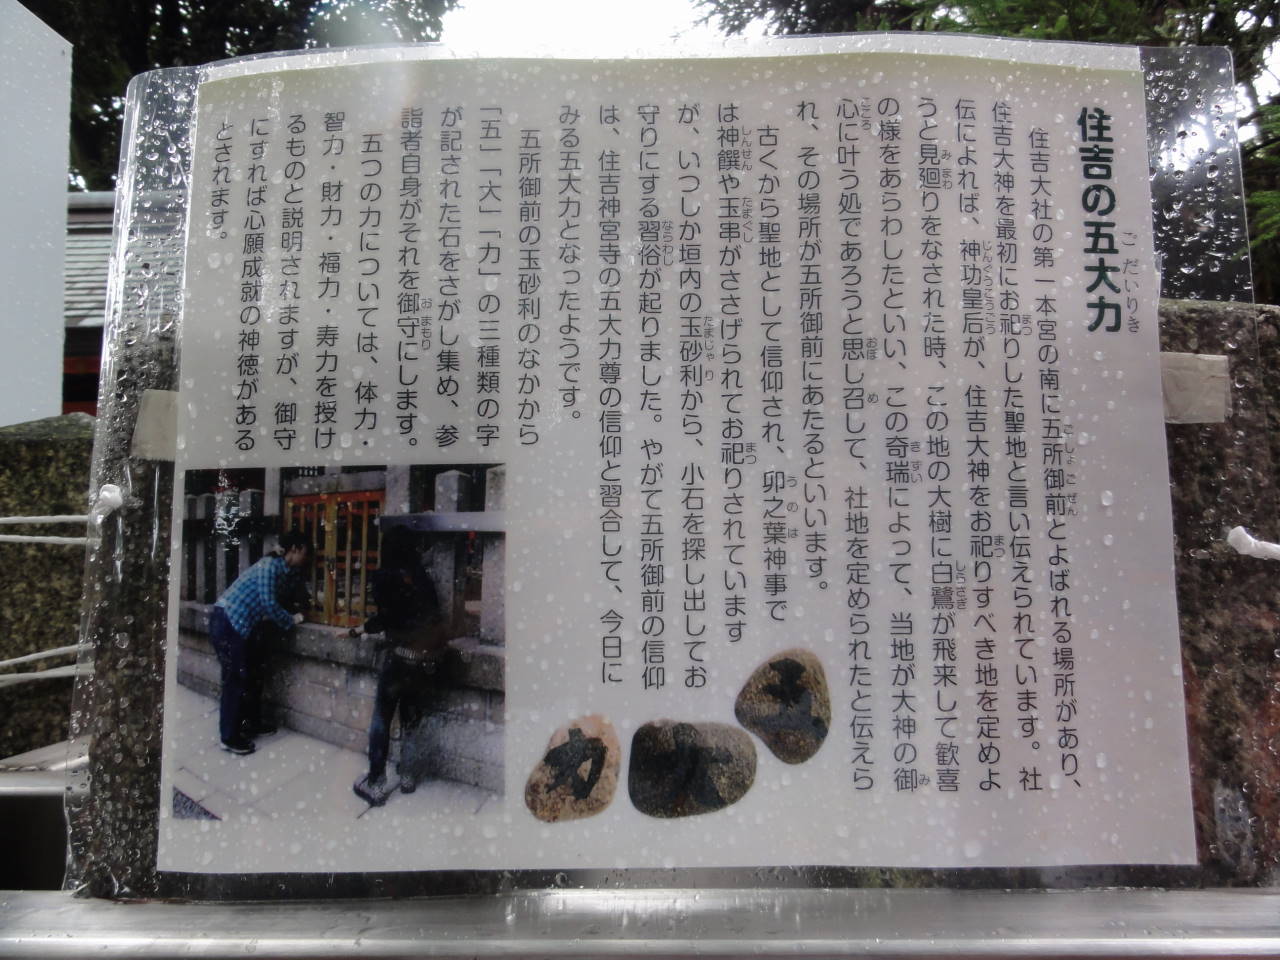 住吉の五大力
住吉大社の第一本宮の南に五所御前とよばれる場所があり、
住吉大神を最初にお祀りした聖地と言い伝えられています。社
伝によれば、神功皇后が、住吉大神をお祀りすべき地を定めよ
うと見廻りをなされた時、この地の大樹に白鷺が飛来して歓喜
の様をあらわしたといい、この奇瑞によって、当地が大神の御
心に叶う処であろうと思し召して、社地を定められたと伝えら
れ、その場所が五所御前にあたるといいます。
古くから聖地として信仰され、卯之葉神事で
は神饌や玉串がささげられてお祀りされています
が、いつしか垣内の玉砂利から、小石を探し出してお
守りにする習俗が起りました。やがて五所御前の信仰
は、住吉神宮寺の五大力尊の信仰と習合して、今日に
みる五大力となったようです。
五所御前の玉砂利のなかから
「五」「大」「力」の三種類の字
が記された石をさがし集め、参
詣者自身がそれを御守にします。
五つの力については、体力・
智力・財力・福力・寿力を授け
るものと説明されますが、御守
にすれば心願成就の神徳がある
とされます。
五
大
力